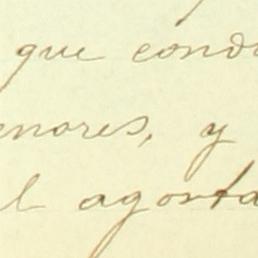 que cond
enores, y
l agosta